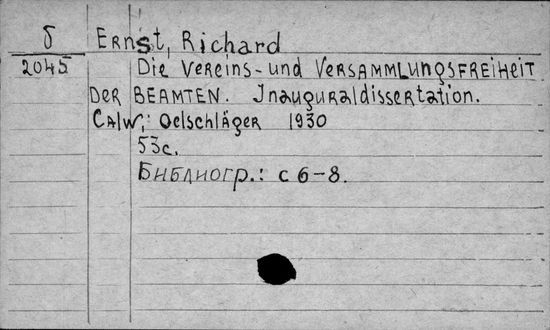 δ Ernst, Richard
2045 Die Vereins- und Versammlungsfreiheit
der Beamten. Inauguraldissertation.
Calw, Oelschläger 1930
53с.
Библиогр.: с 6-8.